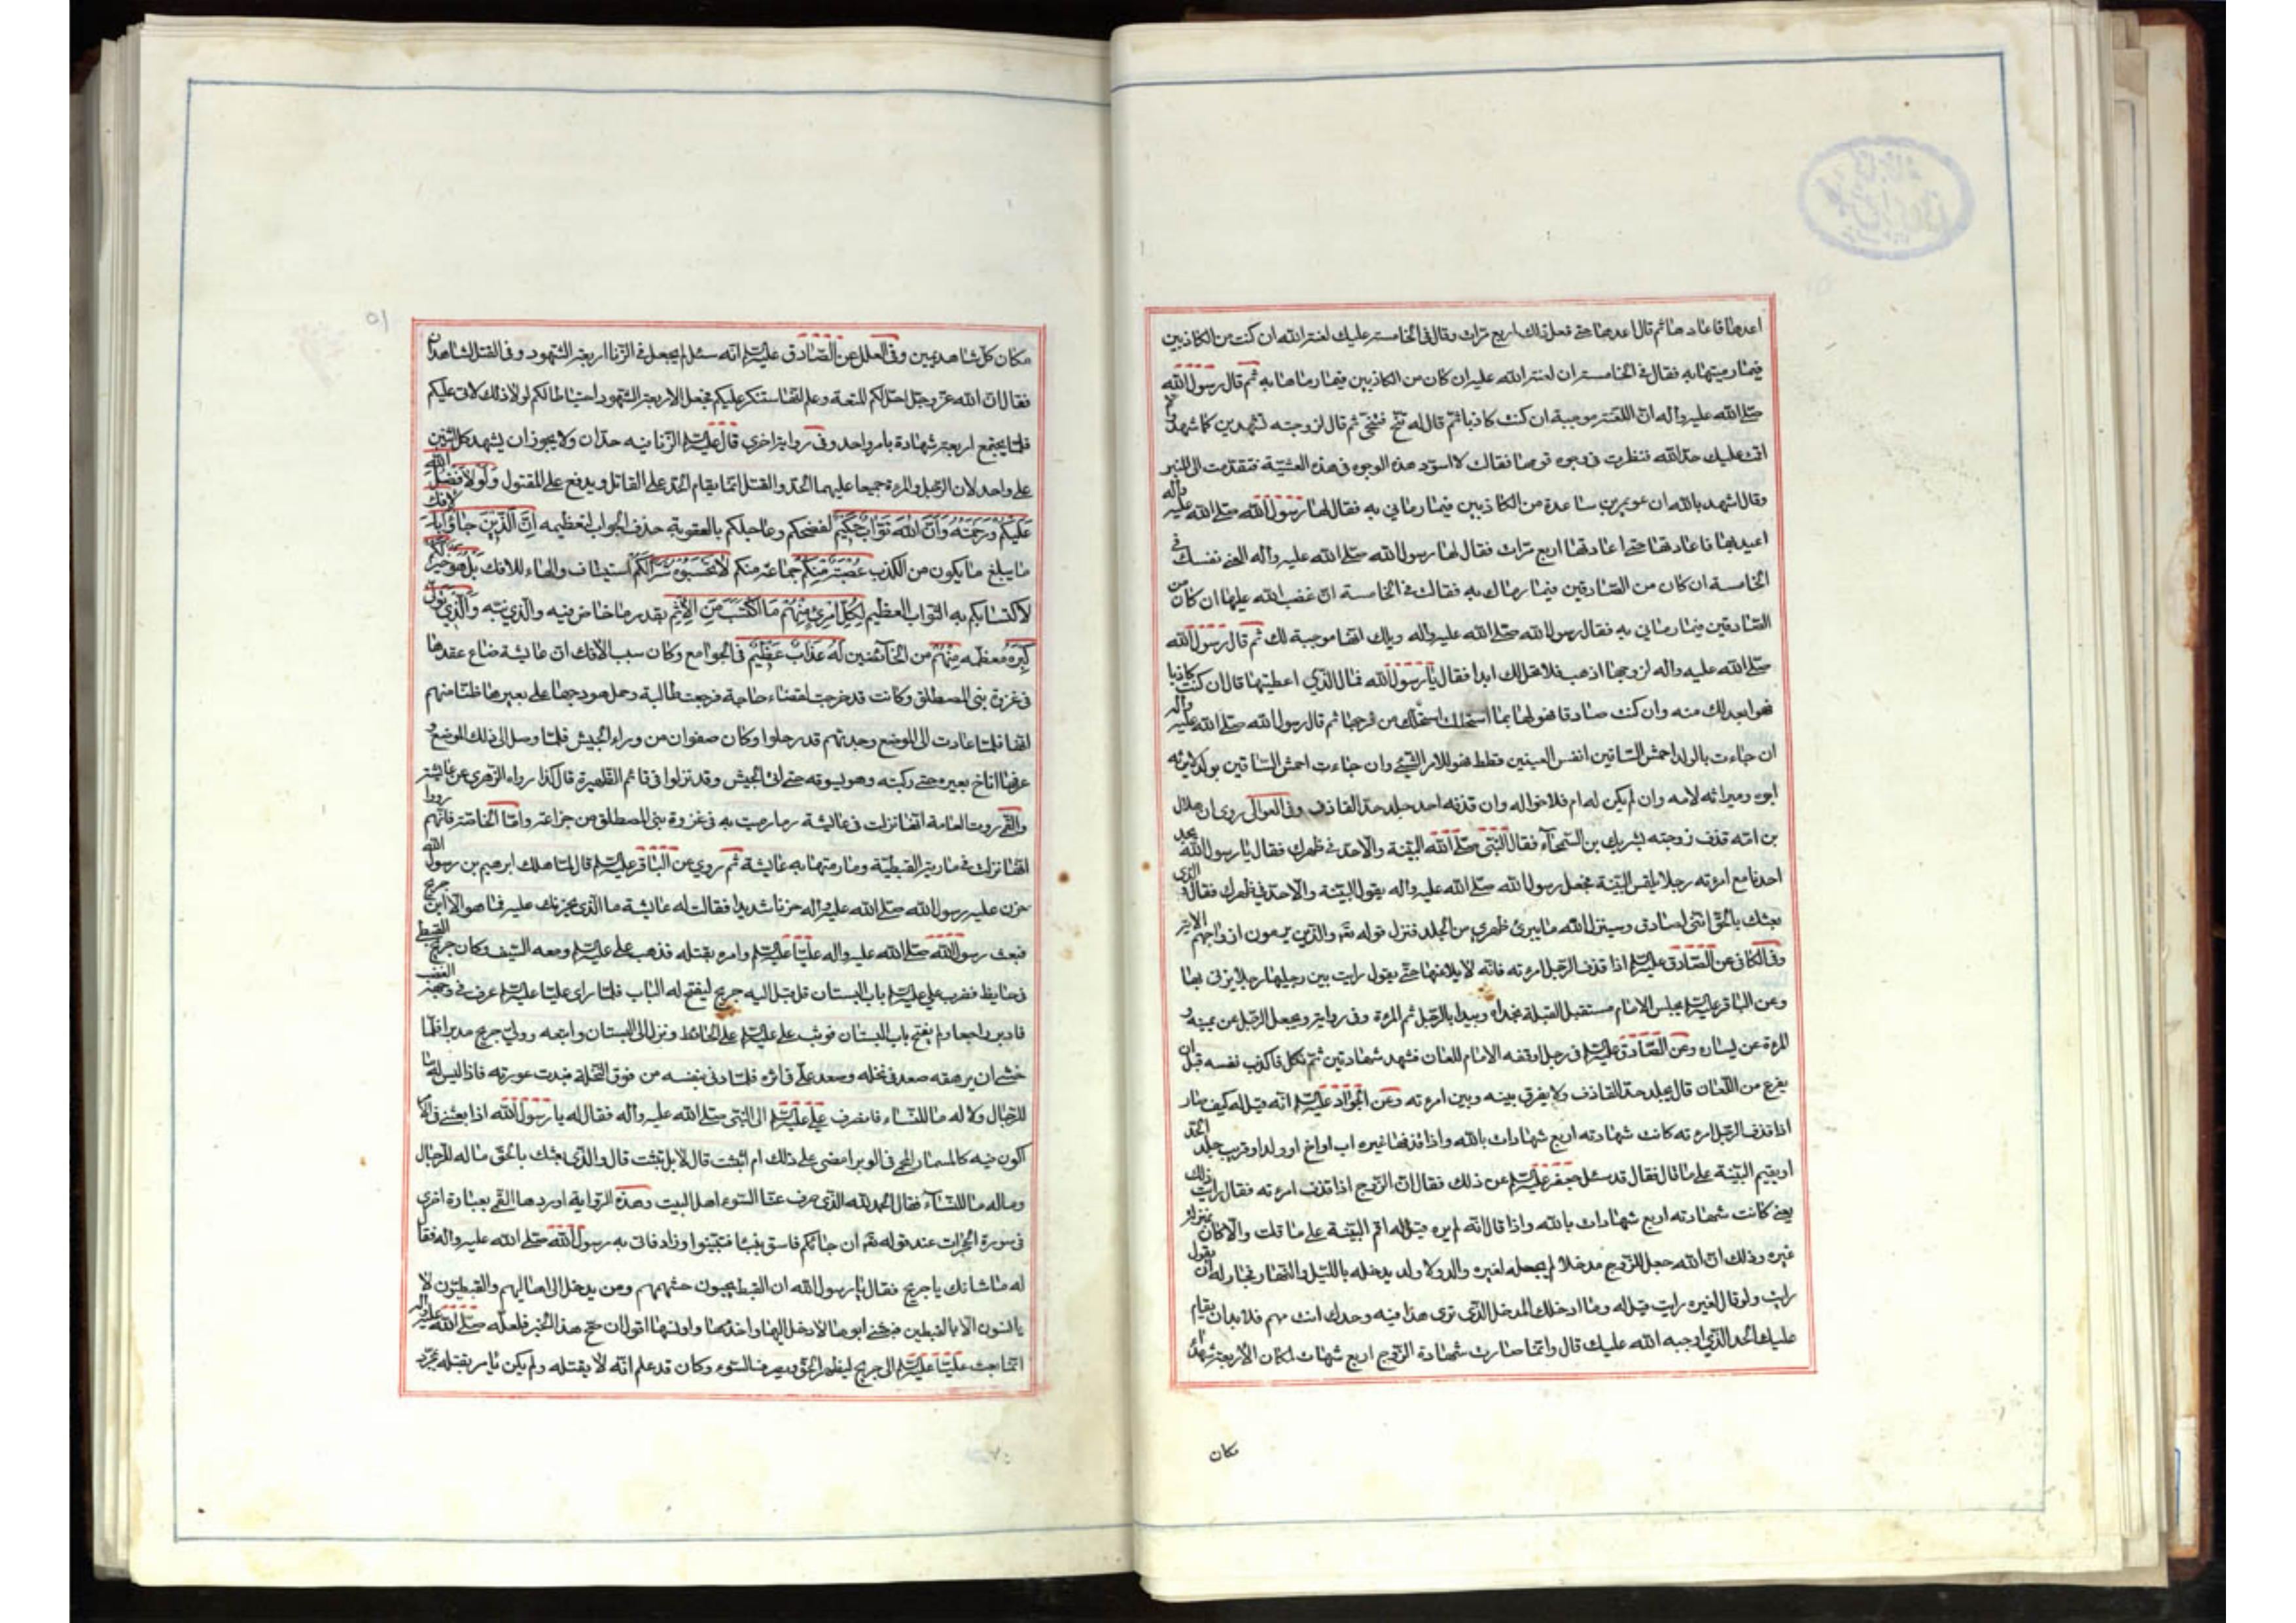 اعدها فاعادها ثم قال اعدها حتى فعل ذلك اربع مرات وقال في الخامسة عليك لعنة الله ان كنت من الكاذبين
فيما رميتها به فقال في الخامسة ان لعنة الله عليه ان كان من الكاذبين فيما رماها به ثم قال رسول الله
صلى الله عليه واله ان اللعنة موجبة ان كنت كاذبا ثم قال له تنح فتنحى ثم قال لزوجته تشهدين كما شهد
اقمت عليك حد الله فنظرت في وجوه قومها فقالت لا اسود هذه الوجوه في هذه العشية فتقدمت الى المنبر
وقال اشهد بالله ان عويمر بن ساعدة من الكاذبين فيما رماني به فقال لها رسول الله صلى الله عليه واله
اعيديها فاعادتها حتى اعادتها اربع مرات فقال لها رسول الله صلى الله عليه واله العني نفسك في
الخامسة ان كان من الصادقين فيما رماك به فقالت في الخامسة ان غضب الله عليها ان كان من
الصادقين فيما رماني به فقال رسول الله صلى الله عليه واله ويلك انها موجبة لك ثم قال رسول الله
صلى الله عليه واله لزوجها اذهب فلا تحل لك ابدا فقال يا رسول الله فمالي الذي اعطيتها قال ان كنت كاذبا
فهو ابعد لك منه وان كنت صادقا فهو لها بما استحللت من فرجها ثم قال رسول الله صلى الله عليه واله
ان جاءت بالولد احمش الساقين انفس العينين قطط فهو للامر السيئ وان جاءت
ابوه وميراثه لامه وان لم يكن له ام فلاخواله وان قذفه احد جلد حد القاذف وفي العوالي روي ان هلال
بن امية قذف زوجته بشريك بن السحماء فقال النبي صلى الله البينة والا حد في ظهرك فقال يا رسول الله يجد
احدنا مع امرئته رجلا يلتمس البينة فجعل رسول الله صلى الله عليه واله يقول البينة والا حد في ظهرك فقال والذي
بعثك بالحق انني لصادق وسينزل الله ما يبرئ ظهري من الجلد فنزل قوله تعه والذين يرمون ازواجهم الاية
وفي الكافي عن الصادق عليه السلم اذا قذف الرجل امرئته فانه لا يلاعنها حتى يقول رايت بين رجليها رجلا يزني بها
وعن الباقر عليه السلم يجلس الامام مستقبل القبلة بحذاه ويبدا بالرجل ثم المرة وفي رواية ويجعل الرجل عن يمينه و
المرة عن يساره وعن الصادق عليه السلم في رجل اوقفه الامام للعان فشهد شهادتين ثم نكل فاكذب نفسه قبل ان
يفرغ من اللعان قال يجلد حد القاذف ولا يفرق بينه وبين امرئته وعن الجواد عليه السلم انه قيل له كيف صار
اذا قذف الرجل امرئته كانت شهادته اربع شهادات بالله واذا قذفها غيره اب او اخ او ولد او قريب جلد الحد
او يقيم البينة على ما قال فقال قد سئل جعفر عليه السلم عن ذلك فقال ان الزوج اذا قذف امرئته فقال رايت ذلك
بعيني كانت شهادته اربع شهادات بالله واذا قال انه لم يره قيل له اقم البينة على ما قلت والا كان بمنزلة
غيره وذلك ان الله جعل للزوج مدخلا لم يجعله لغيره والد ولا ولد يدخله بالليل والنهار فجاز له ان يقول
رايت ولو قال غيره رايت قيل له وما ادخلك المدخل الذي ترى هذا فيه وحدك انت متهم فلا بد ان يقام
عليك الحد الذي اوجبه الله عليك قال وانما صارت شهادة الزوج اربع شهادات لمكان الاربعة شهداء
مكان
مكان كل شاهد يمين وفي العلل عن الصادق عليه السلم انه سئل لم يجعل في الزنا اربعة الشهود وفي القتل الشاهدان
فقال ان الله عز وجل احل لكم المتعة وعلم انها ستنكر عليكم فجعل الاربعة الشهود احتياطا لكم لولا ذلك لاتى عليكم
قلما يجتمع اربعة شهادة بامر واحد وفي رواية اخرى قال عليه السلم الزنا فيه حدان ولا يجوز ان يشهد كل اثنين
على واحد لان الرجل والمرة جميعا عليهما الحد والقتل انما يقام الحد على القاتل ويدفع على المقتول ولولا فضل الله
عليكم ورحمته وان الله تواب حكيم لفضحكم وعاجلكم بالعقوبة حذف الجواب لتعظيمه ان الذين جاؤا بالافك
ما يبلغ ما يكون من الكذب عصبة منكم جماعة منكم لا تحسبوه شرا لكم استيناف والهاء للافك بل هو خير لكم
لاكتسابكم به الثواب العظيم لكل امرئ منهم ما اكتسب من الاثم بقدر ما خاض فيه والذي تولى
كبره معظمه منهم من الخائضين له عذاب عظيم في الجوامع وكان سبب الافك ان عايشة ضاع عقدها
في غزوة بني المصطلق وكانت قد خرجت لقضاء حاجة فرجعت طالبة وحمل هودجها على بعيرها ظنا منهم
انها فلما عادت الى الموضع وجدتهم قد رحلوا وكان صفوان من وراء الجيش فلما وصل الى ذلك الموضع و
عرفها اناخ بعيره حتى ركبته وهو يسوقه حتى اتى الجيش وقد نزلوا في قائم الظهيرة قال كذا رواه الزهري عن عايشة
والقمي روت العامة انها نزلت في عايشة وما رميت به في غزوة بني المصطلق من خزاعة واما الخاصة فانهم رووا
انها نزلت في مارية القبطية وما رمتها به عايشة ثم روى عن الباقر عليه السلم قال لما هلك ابرهيم بن رسول الله
حزن عليه رسول الله صلى الله عليه واله حزنا شديدا فقالت له عايشة ما الذي يحزنك عليه فما هو الا ابن جريح
فبعث رسول الله صلى الله عليه واله عليا عليه السلم وامره بقتله فذهب علي عليه السلم ومعه السيف وكان جريح القبطي
في حايط فضرب علي عليه السلم باب البستان فاقبل اليه جريح ليفتح له الباب فلما راى عليا عليه السلم عرف في وجهه الغضب
فادبر راجعا ولم يفتح باب البستان فوثب علي عليه السلم على الحائط ونزل الى البستان واتبعه وولى جريح مدبرا فلما
خشي ان يرهقه صعد في نخله وصعد علي في اثره فلما دنى منه رمى بنفسه من فوق النخلة فبدت عورته فاذا ليس له ما
للرجال ولا له ما للنساء فانصرف علي عليه السلم الى النبي صلى الله عليه واله فقال له يا رسول الله اذا بعثتني في الامر
اكون فيه كالمسمار المحمي في الوبر امضي على ذلك ام اتثبت قال لا بل تثبت قال والذي بعثك بالحق ما له للرجال
وما له ما للنساء فقال الحمد لله الذي صرف عنا السوء اهل البيت وهذه الرواية اوردها القمي بعبارة اخرى
في سورة الحجرات عند قوله تعه ان جائكم فاسق بنبا فتبينوا وزاد فاتى به رسول الله صلى الله عليه واله فقال
له ما شانك يا جريح فقال يا رسول الله ان القبط يحبون حشمهم ومن يدخل الى اهاليهم والقبطيون لا
يانسون الا بالقبطين فبعثني ابوها لادخل اليها واخدمها واونسها اقول ان صح هذا الخبر فلعله صلى الله عليه واله
انما بعث عليا عليه السلم الى جريح ليظهر الحق ويصرف السوء وكان قد علم انه لا يقتله ولم يكن يامر بقتله بمجرد